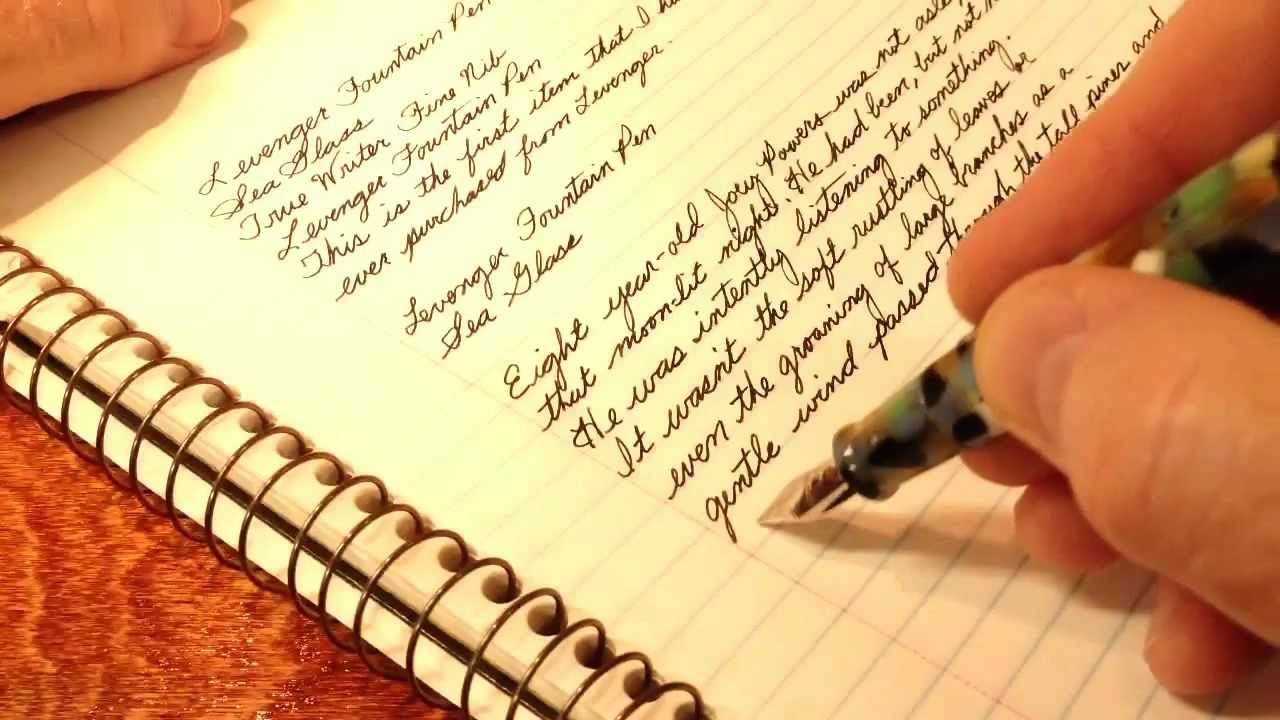 Levenger Fountain Pen
Sea Glass
True Writer Fine Nib
Levenger Fountain Pen
This is the first item that I
ever purchased from Levenger.
Levenger Fountain Pen
Sea Glass
Eight year-old Joey Powers was not
that moon-lit night. He had been, but not
He was intently listening to something.
It wasn't the soft rustling of leaves or
even the groaning of large branches as a
gentle wind passed through the tall pines and